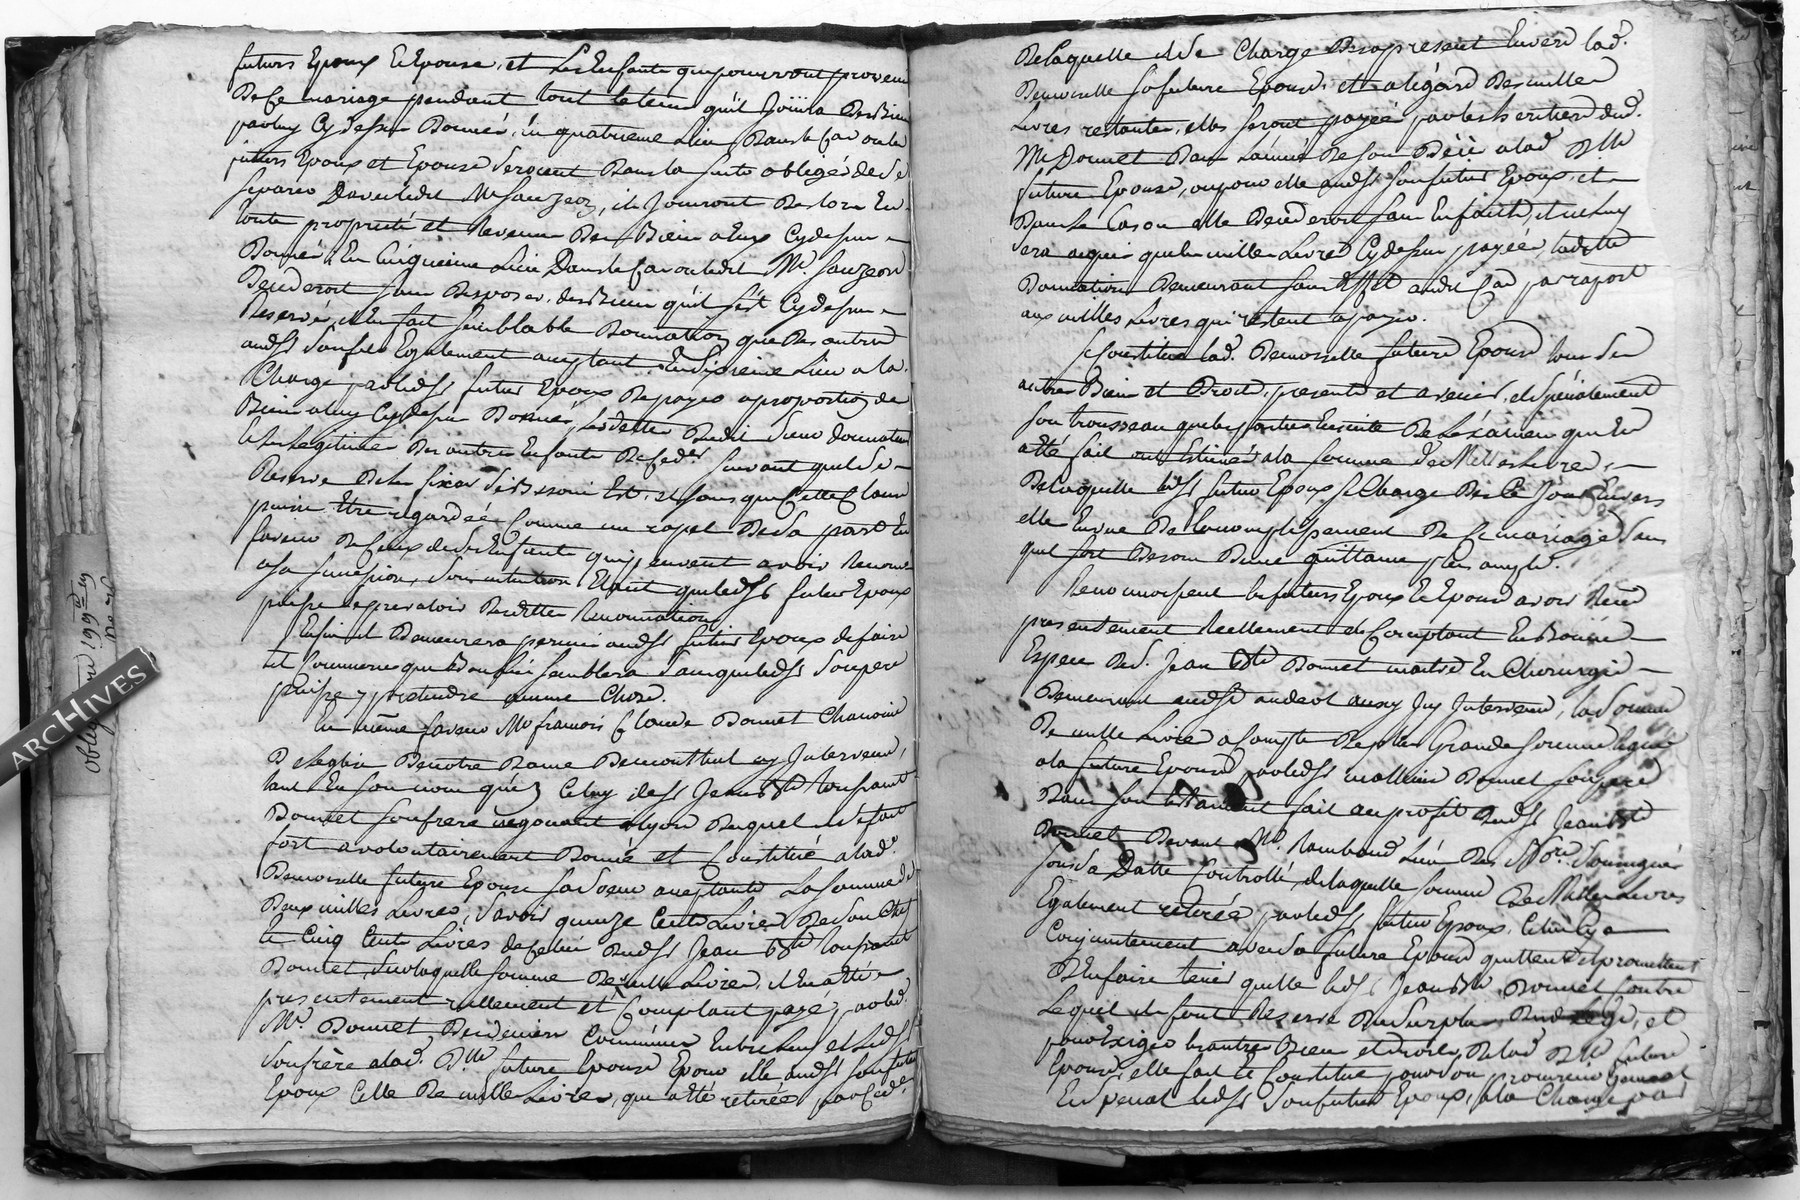 futurs Epoux et Epouse, et les Enfants qui pourront provenir
De Ce mariage pendant tout le tems qu'il Joüira Des Biens
par luy Cy dessus Donnés, en quatrieme Lieu Dans le Cas ou les
futurs Epoux et Epouse seroient Dans la suite obligés de se
separer D'avec ledit Mr Sauzeon, ils Jouiront Des lors En
toute proprieté et Revenus Des Biens a Eux Cy dessus
Donnés, En Cinquieme Lieu Dans le Cas ou ledit Mr. Sauzeon
Decederoit sans Disposer des Biens qu'il s'est Cy dessus
Reservés, il En fait semblable Donnation que Des autres
audt son fils Egalement acceptant, En sixieme Lieu a la
Charge par ledt futur Epoux De payer a proportion des
Biens a luy Cy dessus Donnés, les dettes Dudit sieur donnateur
et les Legitimes Des autres Enfants De Ced. suivant qu'il se
Reserve De les fixer si Besoin Est, et sans que Cette Clause
puisse Etre regardée Comme un rapel De sa part En
faveur De Ceux de ses Enfants qui peuvent avoir Renoncé
a sa succession, son intention Etant que ledt futur Epoux
puisse se prevaloir Desdittes Renonciations
Enfin il Demeurera permis audt futur Epoux de faire
tel Commerce que Bon lui semblera sans que ledt son pere
puisse y pretendre aucune Chose.
En même faveur Mr francois Claude Donnet Chanoine
De l'eglise De notre Dame De montbrison cy Intervenu,
tant En son nom qu'En Celuy de st Jean Bte toussaint
Donnet son frere negociant a lyon Duquel il se fait
fort a volontairement Donné et Constitué a lad.
Demoiselle future Epouse sa soeur acceptante La somme de
Deux milles Livres, savoir quinze Cents Livres De son Chef
Et Cinq Cents Livres de Celui Dudt Jean Bte toussaint
Donnet, sur laquelle somme De mille Livres, il En a été
presentement reellement et Comptant payé par led.
Mr. Donnet Des deniers Communs Entre luy et ledt
son frère a lad. Dlle future Epouse Et pour elle audt son futur
Epoux Celle De mille Livres, qui a été retirée par Ced.
De laquelle il se Charge Des a present Envers lad.
Demoiselle sa future Epouse, et a l'égard Des milles
Livres restantes, elles seront payées par les heritiers dud.
Mr Donnet Dans l'année De son Décès a lad. Dlle
future Epouse, ou pour elle audt son futur Epoux, et
Dans le Cas ou elle Decederoit sans Enfants, il ne luy
sera acquis que les mille Livres Cy dessus payées, laditte
Donnation Demeurant sans Effet audit Cas par raport
aux milles Livres qui restent a payer.
se Constitue lad. Demoiselle future Epouse tous ses
autres Biens et Droits, presents et avenir, et specialement
son trousseau que les parties Ensuite De l'éxamen qui En
a été fait ont Estimés a la somme de Milles Livres,
De laquelle ledt futur Epoux se Charge Des Ce Jour Envers
elle En vue De l'accomplissement De Ce mariage sans
qu'il soit Besoin D'une quittance plus ample.
Reconnoissent les futurs Epoux Et Epouse avoir Recu
presentement Reellement et Comptant En Bonnes
Especes De S. Jean Bte Donnet maitre En Chirurgie
Demeurant audt audit aussy Icy Intervenu, la Somme
De mille Livres a Compte De plus Grande somme leguée
a la future Epouse par ledt mathieu Donnet son pere
Dans son testament fait au profit Dudt Jean Bte
Donnet Devant Me. Rambaud L'un Des Nores soussignés
sous sa Datte Controllé, de laquelle somme De Milles Livres
Egalement retirée par ledt futur Epoux, Celui Cy a
Conjointement avec sa future Epouse quittent et promettent
D'En faire tenir quitte ledt Jean Bte Donnet Contre
Lequel ils font Reserve Du surplus Dud. Legs, et
pour Exiger les autres Biens et droits, De lad. Dlle future
Epouse, elle fait Et Constitue pour son procureur General
Et special ledt son futur Epoux, a la Charge par
ARCHIVES